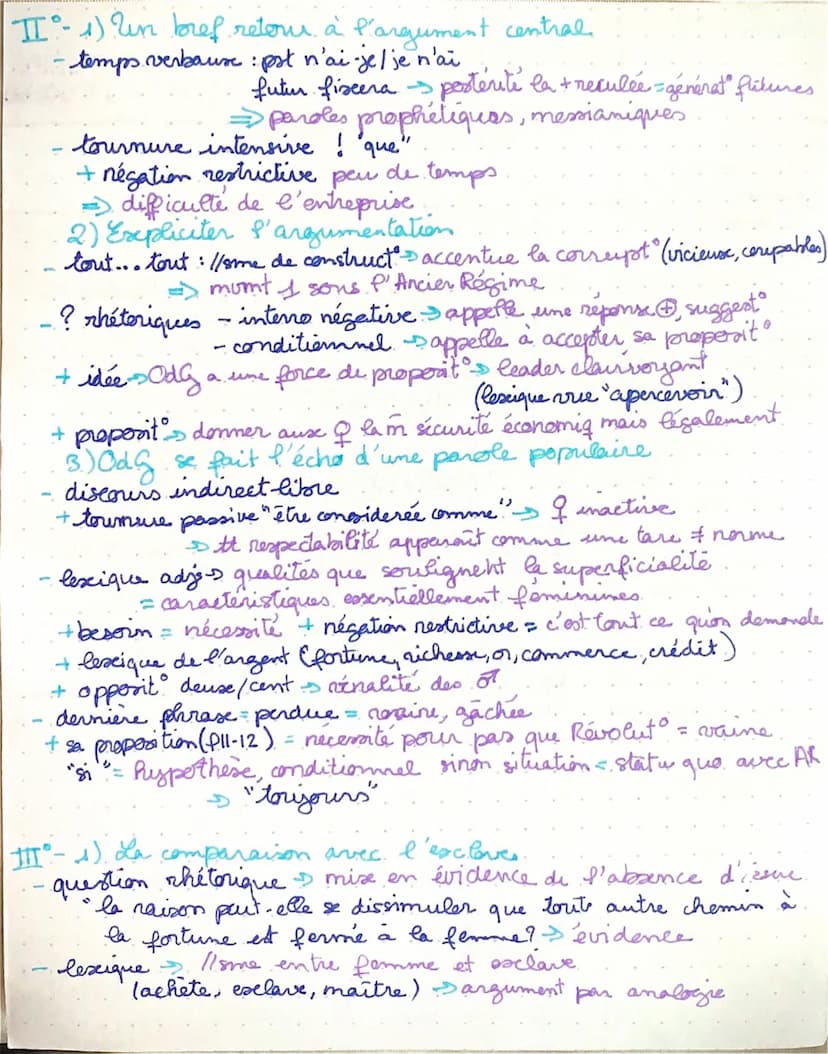 II°- 1) Un bref retour à l'argument central
- temps verbaux : pst n'ai-je/je n'ai
futur fixera → postérité la + reculée = générat° futures
⇒ paroles prophétiques, messianiques
- tournure intensive ! "que"
+ négation restrictive peu de temps
⇒ difficulté de l'entreprise
2) Expliciter l'argumentation
- tout... tout : //sme de construct° → accentue la corrupt° (vicieux, coupables)
⇒ mvmt 1 sous l'Ancien Régime
- ? rhétoriques - interro négative → appelle une réponse ⊕, suggest°
- conditionnel → appelle à accepter sa proposit°
+ idée → OdG a une force de proposit° → leader clairvoyant
(lexique vue "apercevoir")
+ proposit° → donner aux ♀ la m̄ sécurité économiq mais légalement
3) OdG se fait l'écho d'une parole populaire
- discours indirect libre
+ tournure passive "être considerée comme" → ♀ inactive
→ tt respectabilité apparaît comme une tare ≠ norme
- lexique adj → qualités que soulignent la superficialité
= caractéristiques essentiellement féminines
+ besoin = nécessité + négation restrictive = c'est tout ce qu'on demande
+ lexique de l'argent (fortune, richesse, or, commerce, crédit)
+ opposit° deux/cent → vénalité des ♂
- dernière phrase = perdue = noraire, gâchée
+ sa proposition (p11-12) = necessité pour pas que Révolut° = vaine
"si" = hypothèse, conditionnel sinon situation = statu quo avec AR
→ "toujours"
III°- 1) La comparaison avec l'esclave
- question rhétorique → mise en évidence de l'absence d'issue
"la raison peut-elle se dissimuler que tout autre chemin à
la fortune est fermé à la femme? → évidence
- lexique → //sme entre femme et esclave
(achète, esclave, maître) → argument par analogie